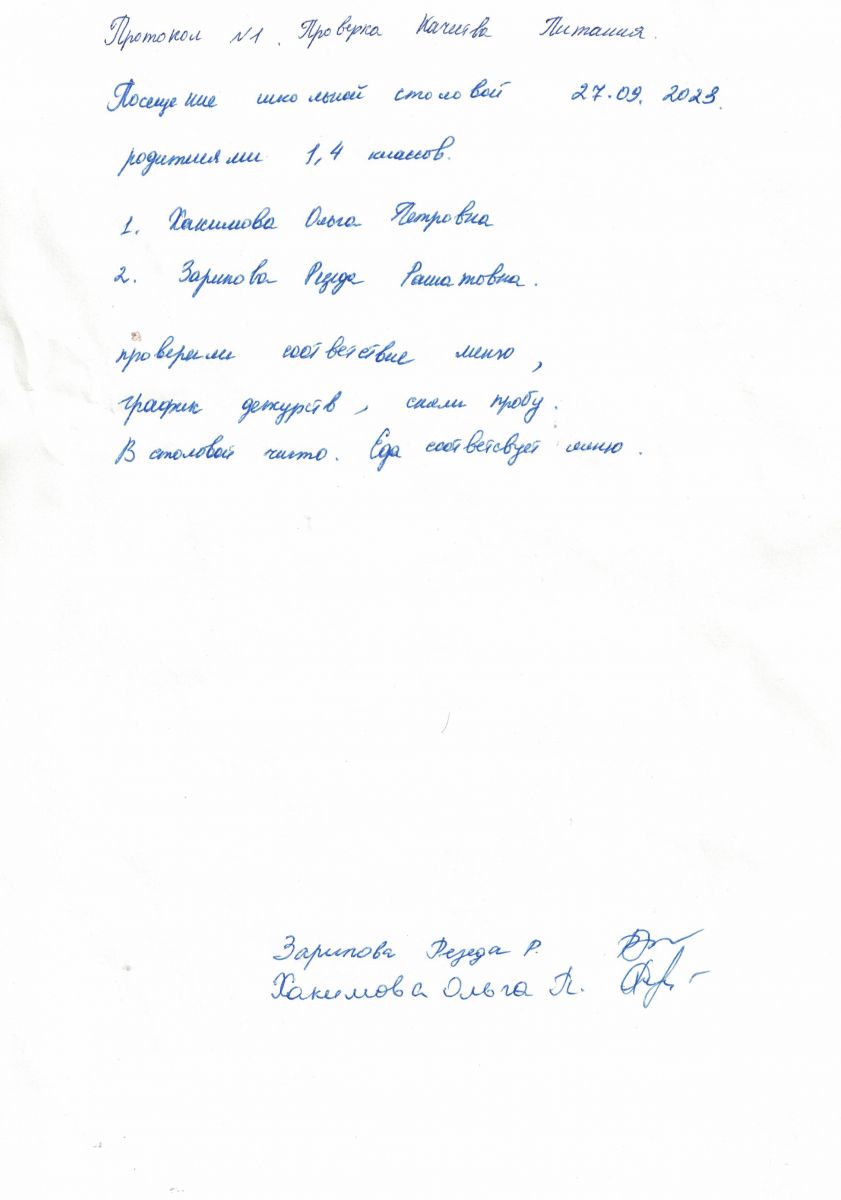 Протокол №1. Проверка Качества Питания.
Посещение школьной столовой 27.09.2023.
родителями 1,4 классов.
1. Хакимова Ольга Петровна
2. Зарипова Резеда Рашатовна.
проверили соответствие меню,
график дежурств, сняли пробу.
В столовой чисто. Еда соответсвует меню.
Зарипова Резеда Р.
Хакимова Ольга П.